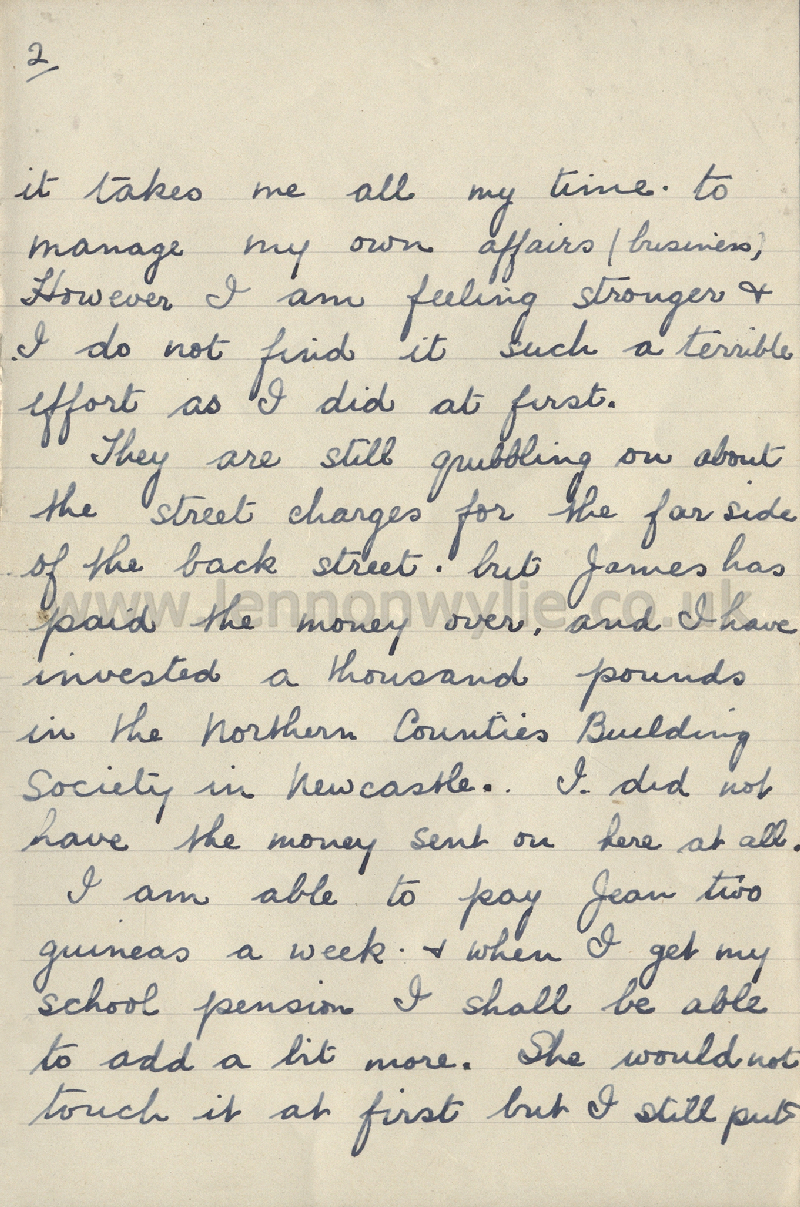 2/
it takes me all my time. to
manage my own affairs (business)
However I am feeling stronger &
I do not find it such a terrible
effort as I did at first.
They are still grubbling on about
the street charges for the far side
of the back street. but James has
www.lennonwylie.co.uk
paid the money over. and I have
invested a thousand pounds
in the Northern Counties Building
Society in Newcastle.. I did not
have the money sent on here at all.
I am able to pay Jean two
guineas a week. & when I get my
school pension I shall be able
to add a bit more. She would not
touch it at first but I still put